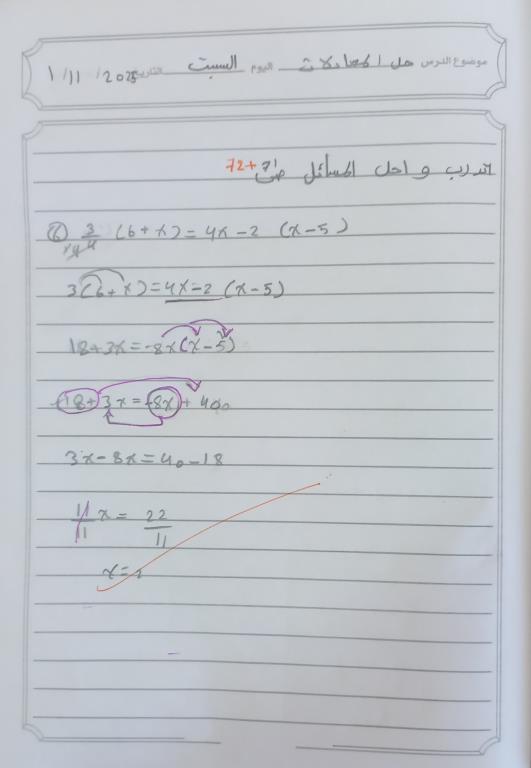 موضوع الدرس حل المعادلات اليوم السبت التاريخ 2025/11/1
تدرب و احل المسائل ص71+72
6) 3/4 (6+x)=4x-2 (x-5)
x4
3(6+x)=4x-2 (x-5)
18+3x=-8x(x-5)
18+3x=-8x+40
3x-8x=40-18
11/11 x = 22/11
x=2